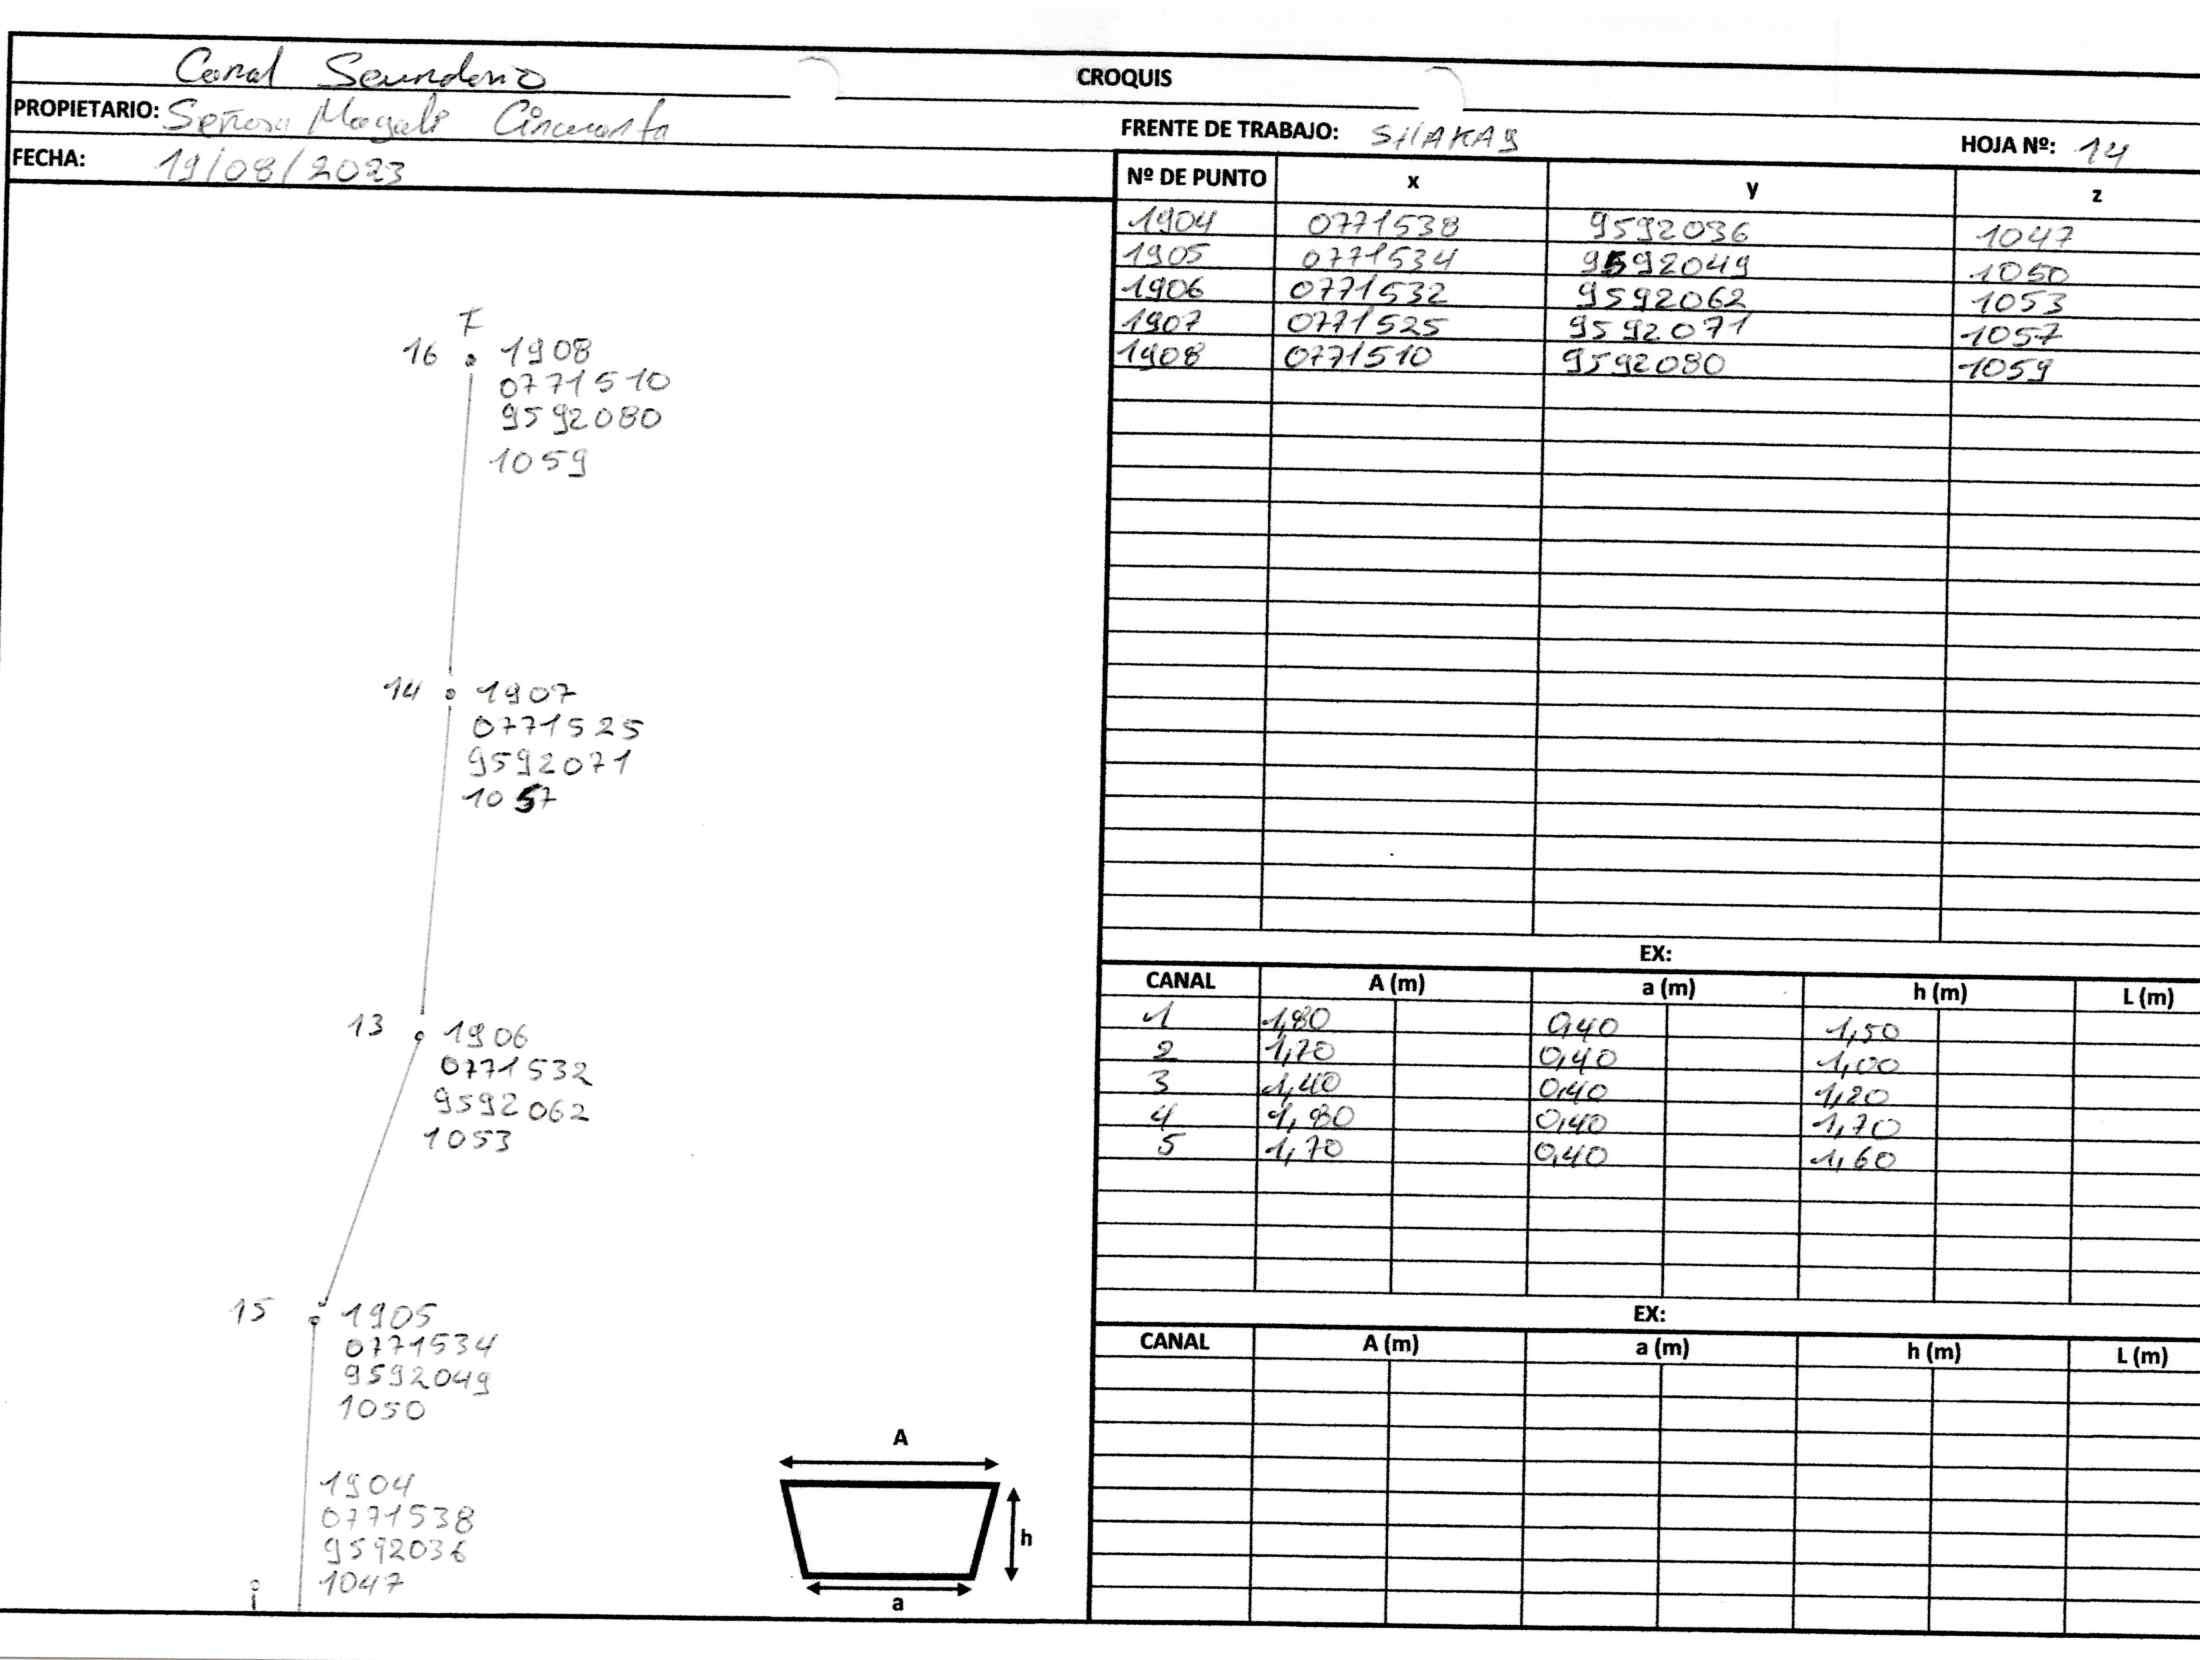 Canal Secundario
CROQUIS
PROPIETARIO: Señora Magali Cincuenta
FRENTE DE TRABAJO: SHAKAY
HOJA Nº: 14
FECHA: 19/08/2023
Nº DE PUNTO x y z
1904 0771538 9592036 1047
1905 0771534 9592049 1050
1906 0771532 9592062 1053
1907 0771525 9592071 1057
1908 0771510 9592080 1059
F
16 1908
0771510
9592080
1059
14 1907
0771525
9592071
1057
13 1906
0771532
9592062
1053
15 1905
0771534
9592049
1050
1904
0771538
9592036
1047
i
A
h
a
EX:
CANAL A (m) a (m) h (m) L (m)
1 1,80 0,40 1,50
2 1,70 0,40 1,00
3 1,40 0,40 1,20
4 1,80 0,40 1,70
5 1,70 0,40 1,60
EX:
CANAL A (m) a (m) h (m) L (m)